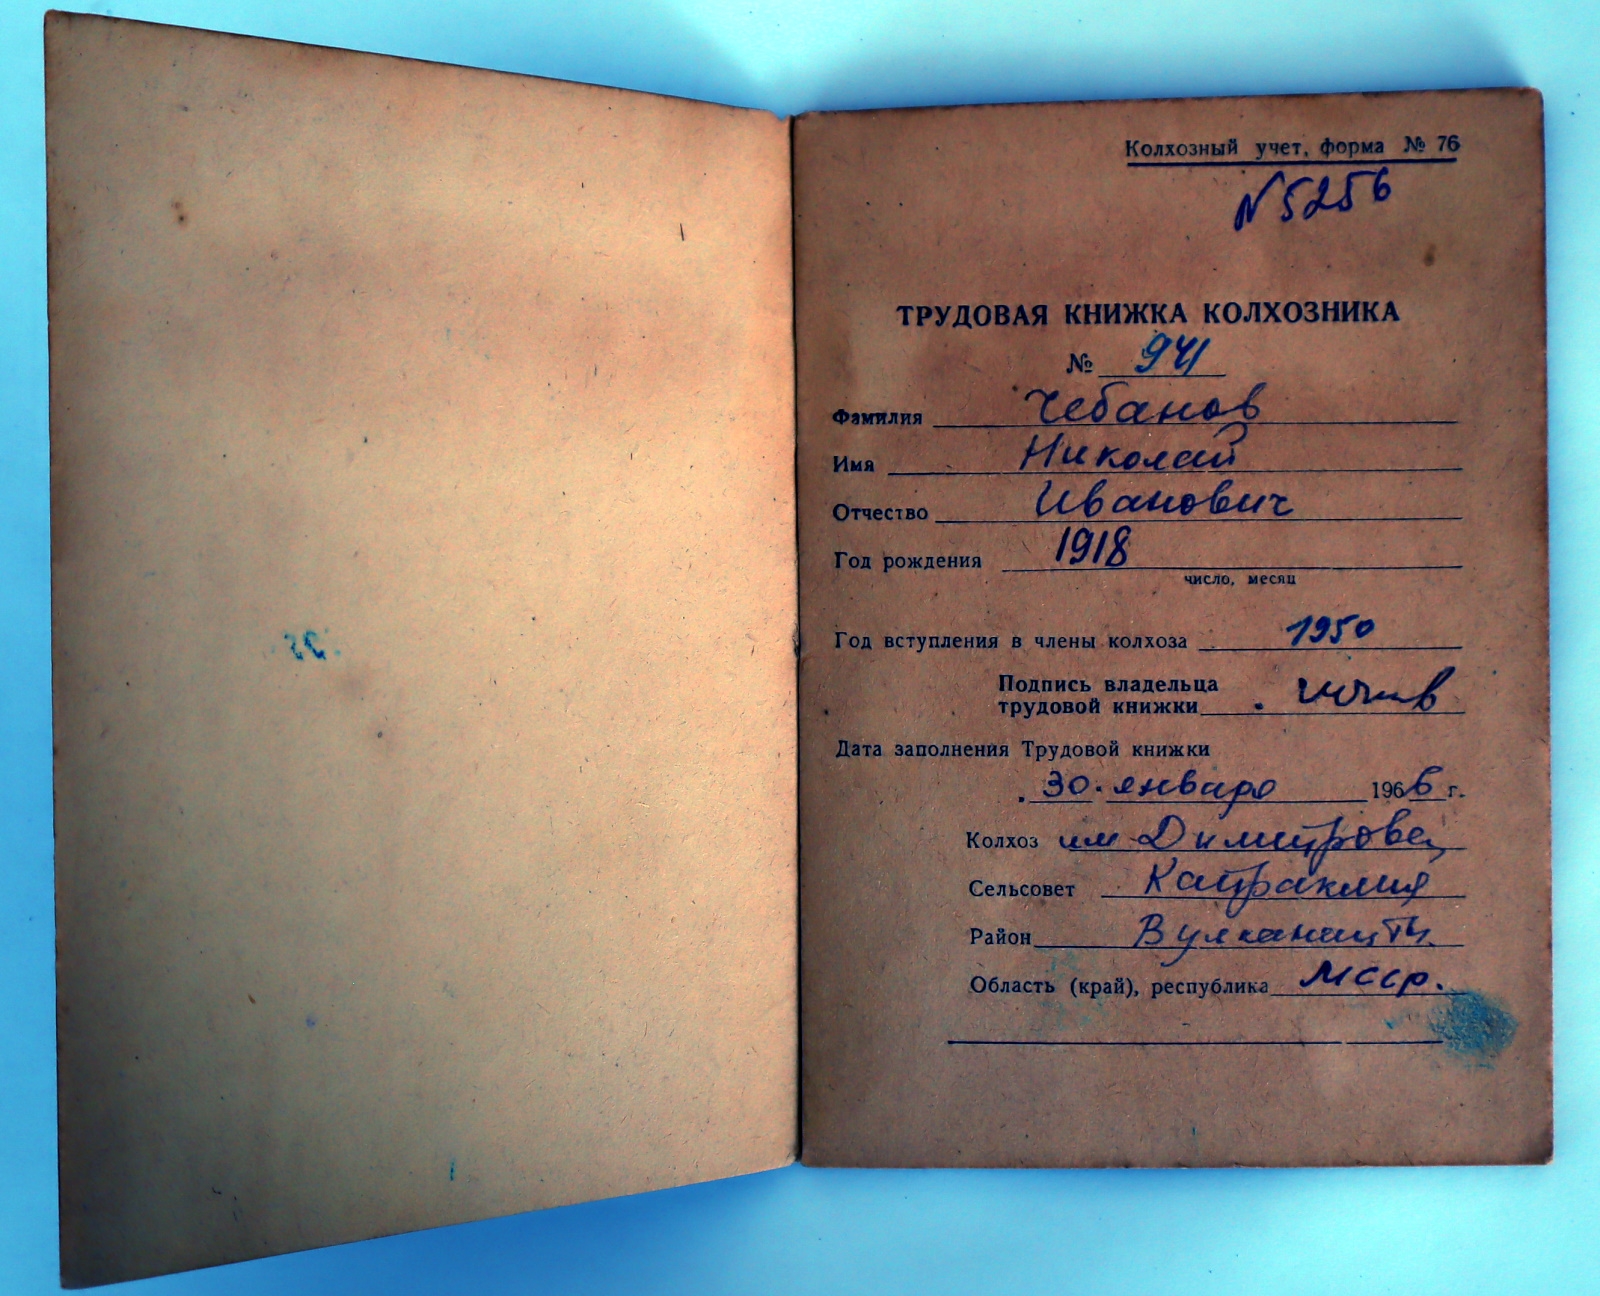 Колхозный учет, форма № 76
N 5256
ТРУДОВАЯ КНИЖКА КОЛХОЗНИКА
№ 941
Фамилия Чебанов
Имя Николай
Отчество Иванович
Год рождения 1918
число, месяц
Год вступления в члены колхоза 1950
Подпись владельца
трудовой книжки
Дата заполнения Трудовой книжки
30 января 1966 г.
Колхоз им Димитрова
Сельсовет Кайраклия
Район Вулканешты
Область (край), республика МССР.